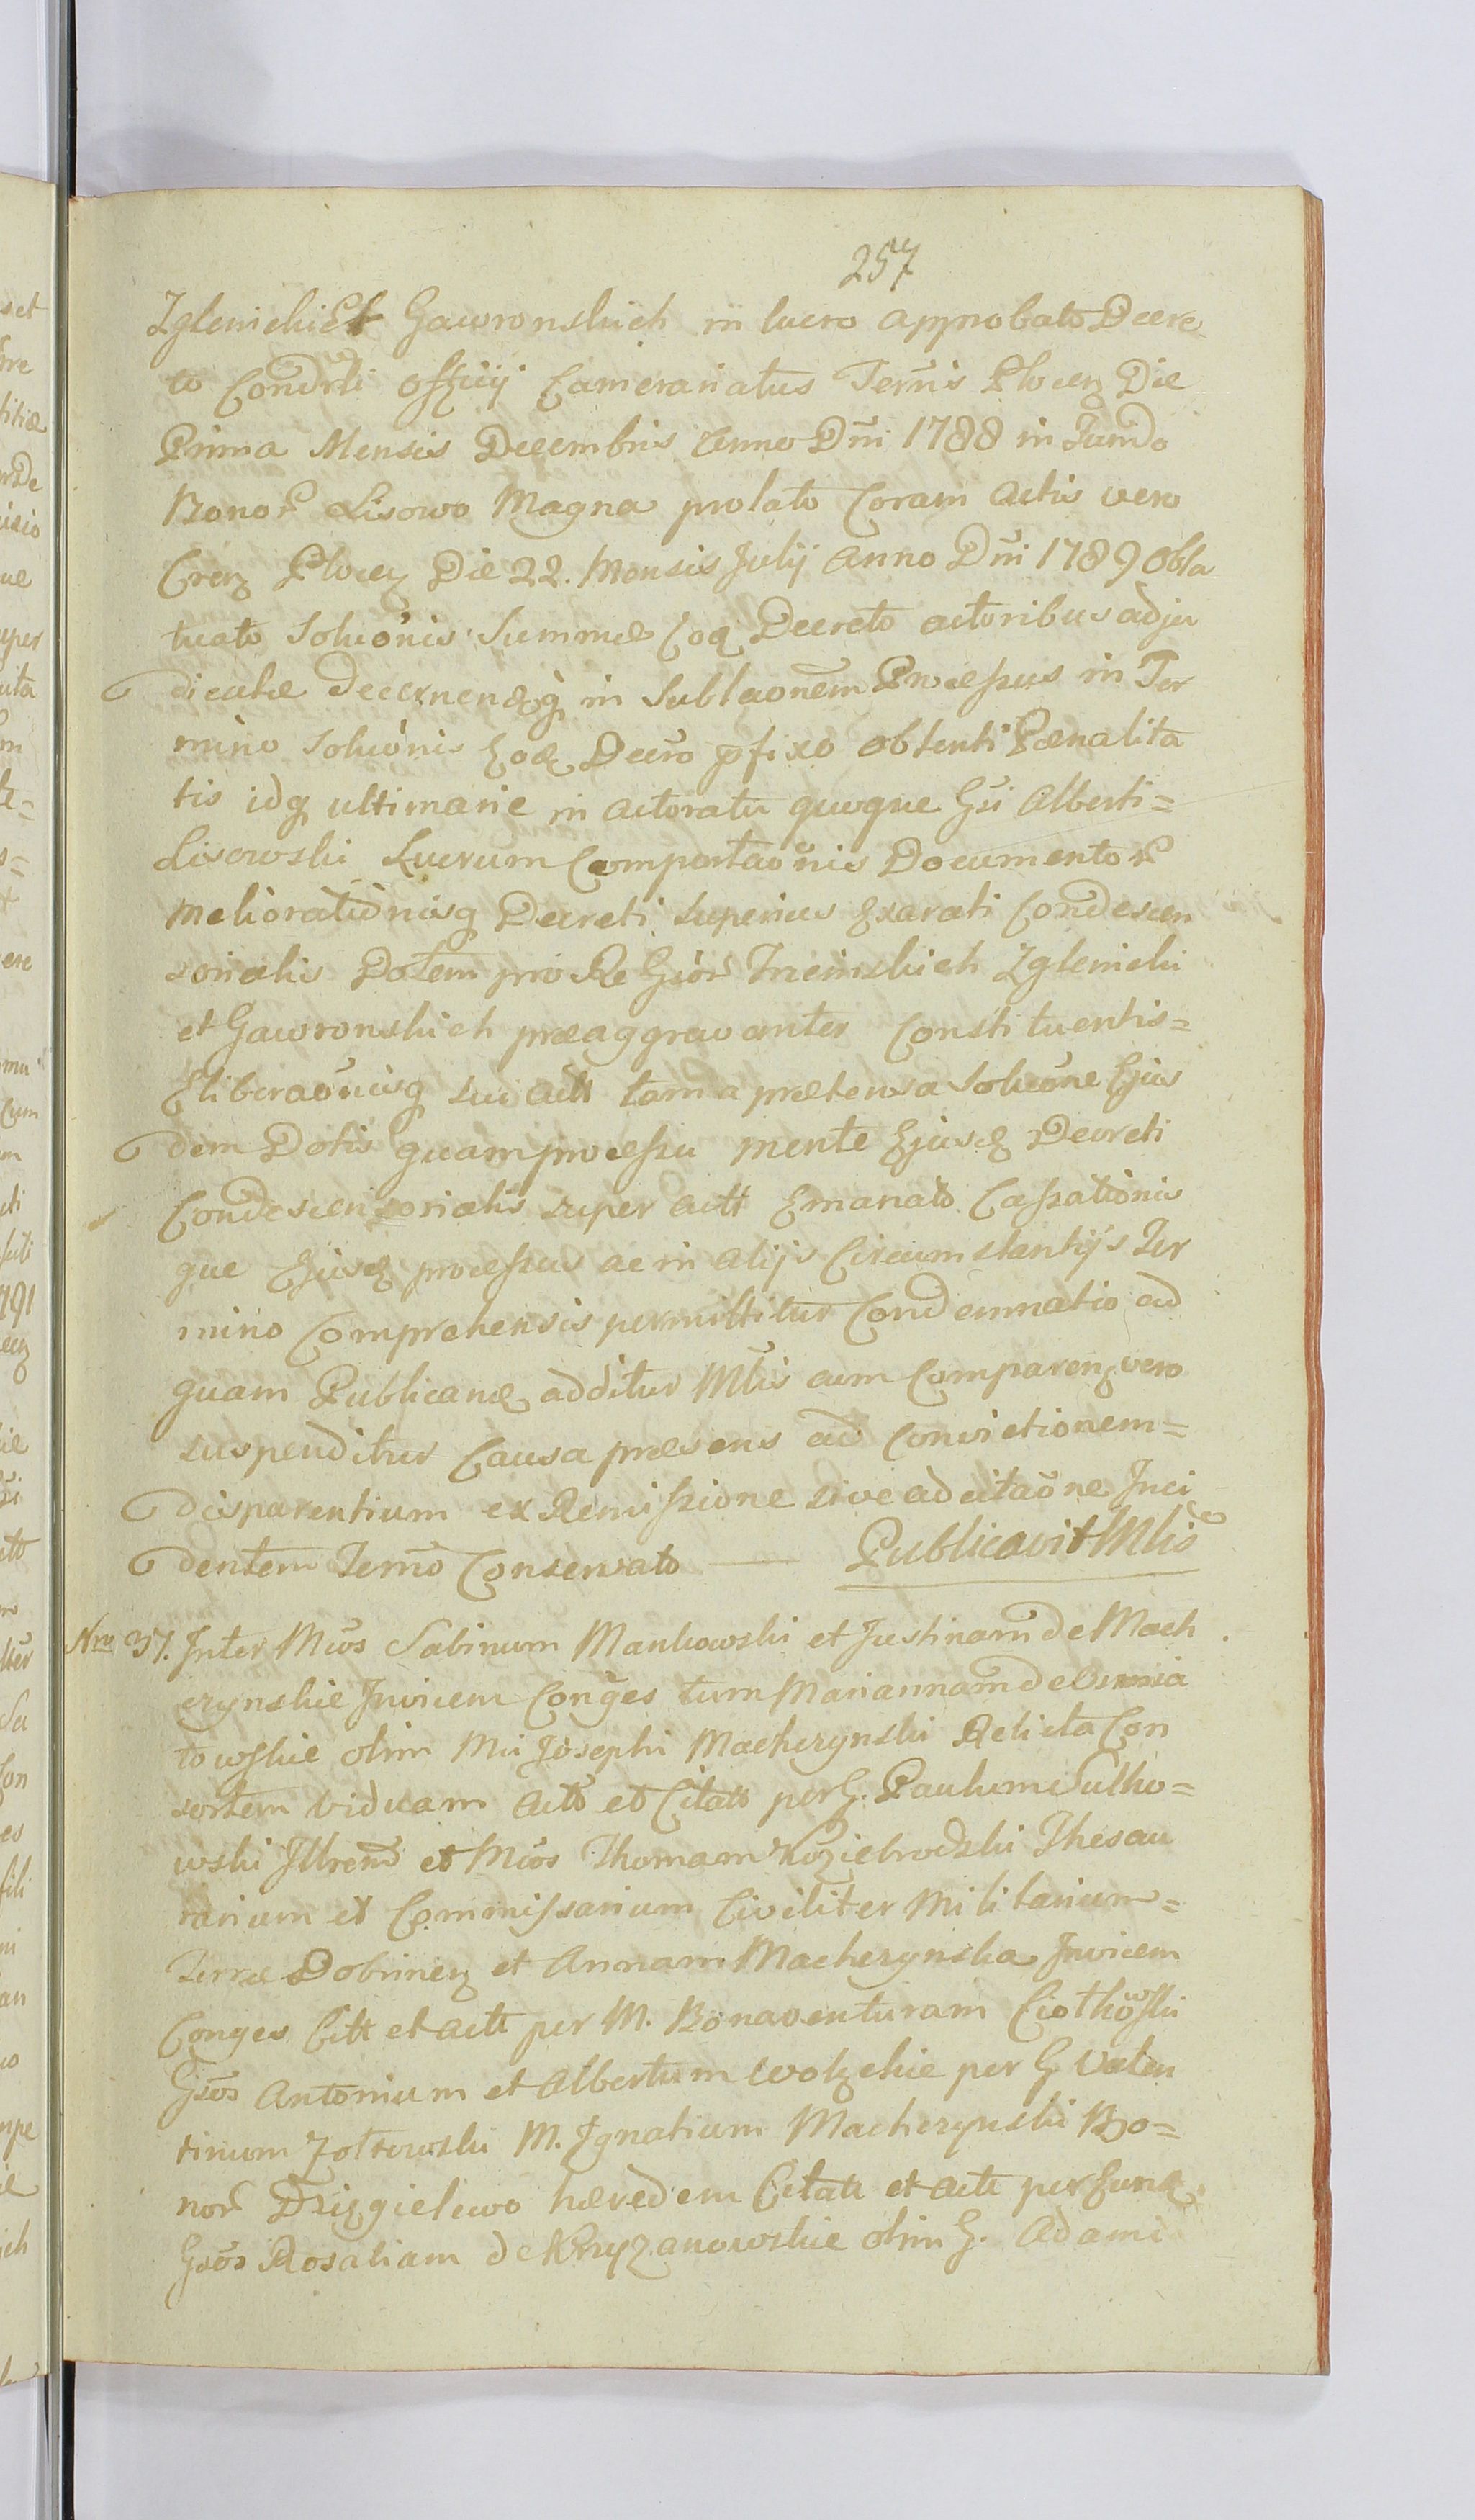 257
Zglenickich Gawronskich in lucro approbato Decre
to Condrli Officij Cameranatus Terris Plocen Die
Prima Mensis Decembris Anno Dni 1788 in Fundo
Bonor Lisowo Magna prolato Coram Actis vero
Cren Plocen Die 22. Mensis Julij Anno Dni 1789 Obla
tuato Soluonis Summæ Eoq Decreto actoribus adju
dicatæ decernen in Sublaonem Processus in Ter
mino Soluonis Eoq Decro pfixo obtenti Pænalita
tis idq ultimarie in Actoratu quoque Gsi Alberti=
Lisowski Lucrum Comportaonis Documentor
meliorationisq Decreti superius Exarati Condescen
sorialis Dotem pro Re Gsor Trzcinskich Zglenicki
et Gawronskich præaggravantes Constituentis=
Eliberaonisq sui Actt tam a prætensa Soluone Ejus
dem Dotis quam processu mente Ejusq Decreti
Condescensorialis super Actt Emanato Cassationis
que Ejusq processus ac in alijs Circumstantijs Ter
mino Comprehensis permittitur Condemnatio ad
quam Publicanæ additur Mlis cum Comparen vero
suspenditur Causa præsens ad Convictionem=
disparentium ex Remissione sive adcitaone Inci
dentem Termo Conservato — Publicavit Mlis
Nro 37. Inter Mcos Sabinum Mankowski et Justinam de Mach
czynskie Invicem Conges tum Mariannam de
towskie olim Mci Josephi Machczynski Relicta Con
sortem viduam Actt et Citatt per G. Paulum Sulko=
wski Illrem et Mcos Thomam Koziebrodzki Thesau
rarium et Commissarium Civiliter Militarium=
Terræ Dobrinen et Annam Machczynska Invicem
Conges Citt et Actt per M. Bonaventuram Ciotkowski
Gsos Antonium et Albertum Wolzckie per G Valen
tinum Zoltowski M. Ignatium Machczynski Bo=
nor Dzięgielewo hæredem Citatt et Actt per Eund
Gsos Rosaliam de Kryzanowskie olim G. Adami